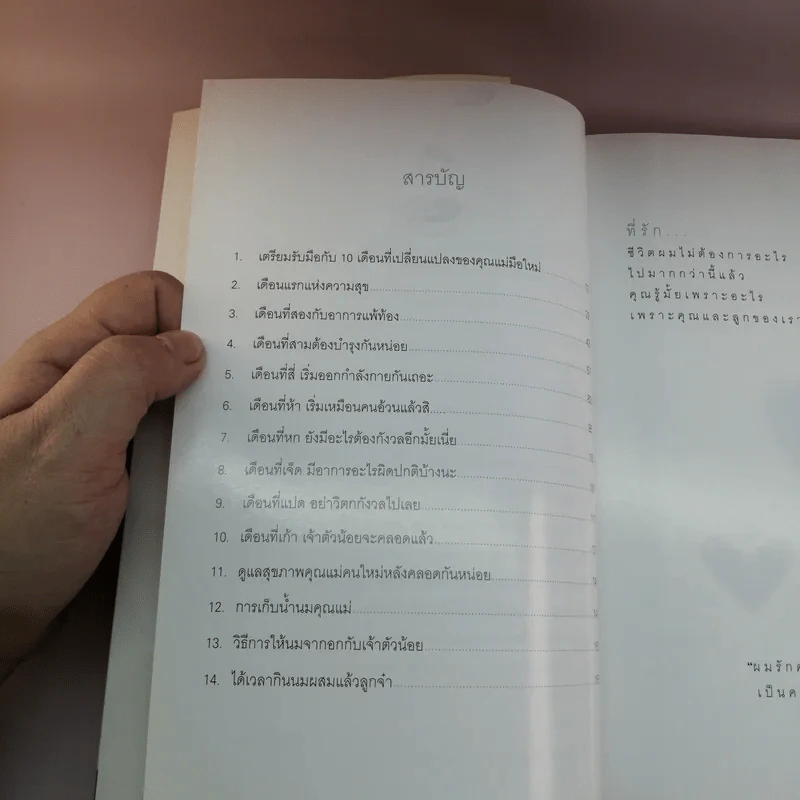 สารบัญ
1. เตรียมรับมือกับ 10 เดือนที่เปลี่ยนแปลงของคุณแม่มือใหม่
2. เดือนแรกแห่งความสุข
3. เดือนที่สองกับอาการแพ้ท้อง
4. เดือนที่สามต้องบำรุงกันหน่อย
5. เดือนที่สี่ เริ่มออกกำลังกายกันเถอะ
6. เดือนที่ห้า เริ่มเหมือนคนอ้วนแล้วสิ
7. เดือนที่หก ยังมีอะไรต้องกังวลอีกมั้ยเนี่ย
8. เดือนที่เจ็ด มีอาการอะไรผิดปกติบ้างนะ
9. เดือนที่แปด อย่าวิตกกังวลไปเลย
10. เดือนที่เก้า เจ้าตัวน้อยจะคลอดแล้ว
11. ดูแลสุขภาพคุณแม่คนใหม่หลังคลอดกันหน่อย
12. การเก็บน้ำนมคุณแม่
13. วิธีการให้นมจากอกกับเจ้าตัวน้อย
14. ได้เวลากินนมผสมแล้วลูกจ๋า
ที่รัก...
ชีวิตผมไม่ต้องการอะไร
ไปมากกว่านี้แล้ว
คุณรู้มั้ยเพราะอะไร
เพราะคุณและลูกของเรา
"ผมรัก
เป็น